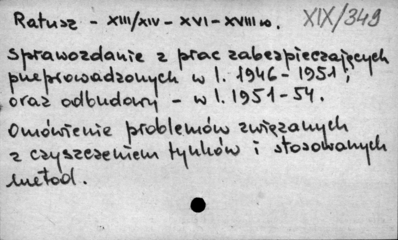 Ratusz - XIII/XIV - XVI - XVIII w. XIX/349
Sprawozdanie z prac zabezpieczających
przeprowadzonych w l. 1946-1951,
oraz odbudowy - w l. 1951-54.
Omówienie problemów związanych
z czyszczeniem tynków i stosowanych
metod.